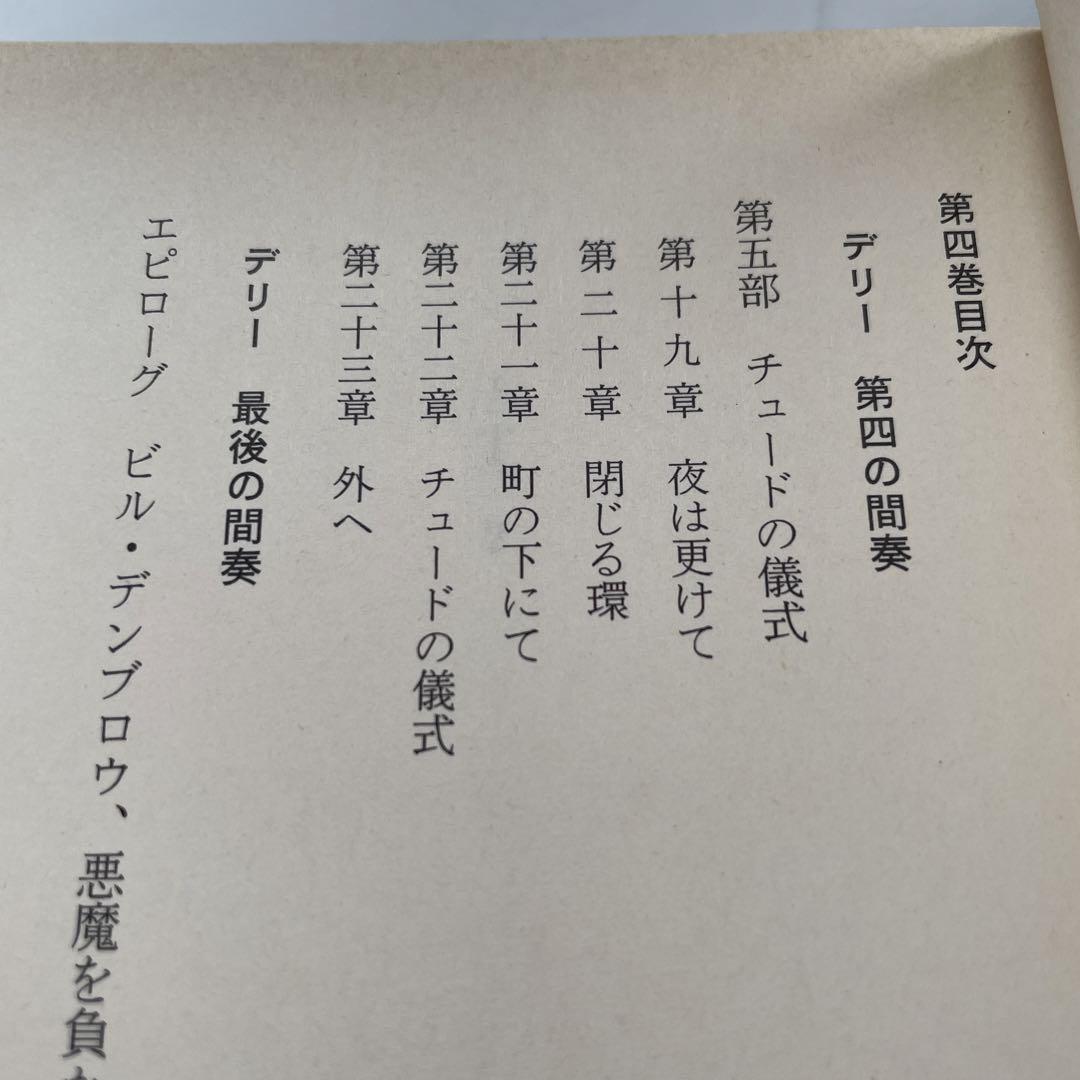 第四巻目次
デリー 第四の間奏
第五部 チュードの儀式
第十九章 夜は更けて
第二十章 閉じる環
第二十一章 町の下にて
第二十二章 チュードの儀式
第二十三章 外へ
デリー 最後の間奏
エピローグ ビル・デンブロウ、悪魔を負